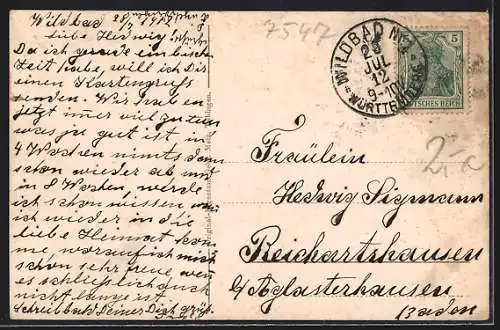 Wildbad 28/7 1912
Liebe Hedwig
Da ich gerade ein bisch
Zeit habe, will ich Dir
einen Kartengruß
senden. Wir haben
jetzt immer viel zu tun
was ja gut ist in
4 Wochen nimts dann
schon wieder ab und
in 8 Wochen, werde
ich schon wissen wan
ich wieder in die
liebe Heimat kom
me, worauf ich mich
schon sehr freue, wen
es schließlich auch
nicht lange ist
Schreib bald Deiner Dich grüß.
7547
WILDBAD
28
JUL
12
9-10
WÜRTTEMBERG
5
DEUTSCHES REICH
Fräulein
Hedwig Sigmann
Reichartshausen
b/ Aglasterhausen
Baden